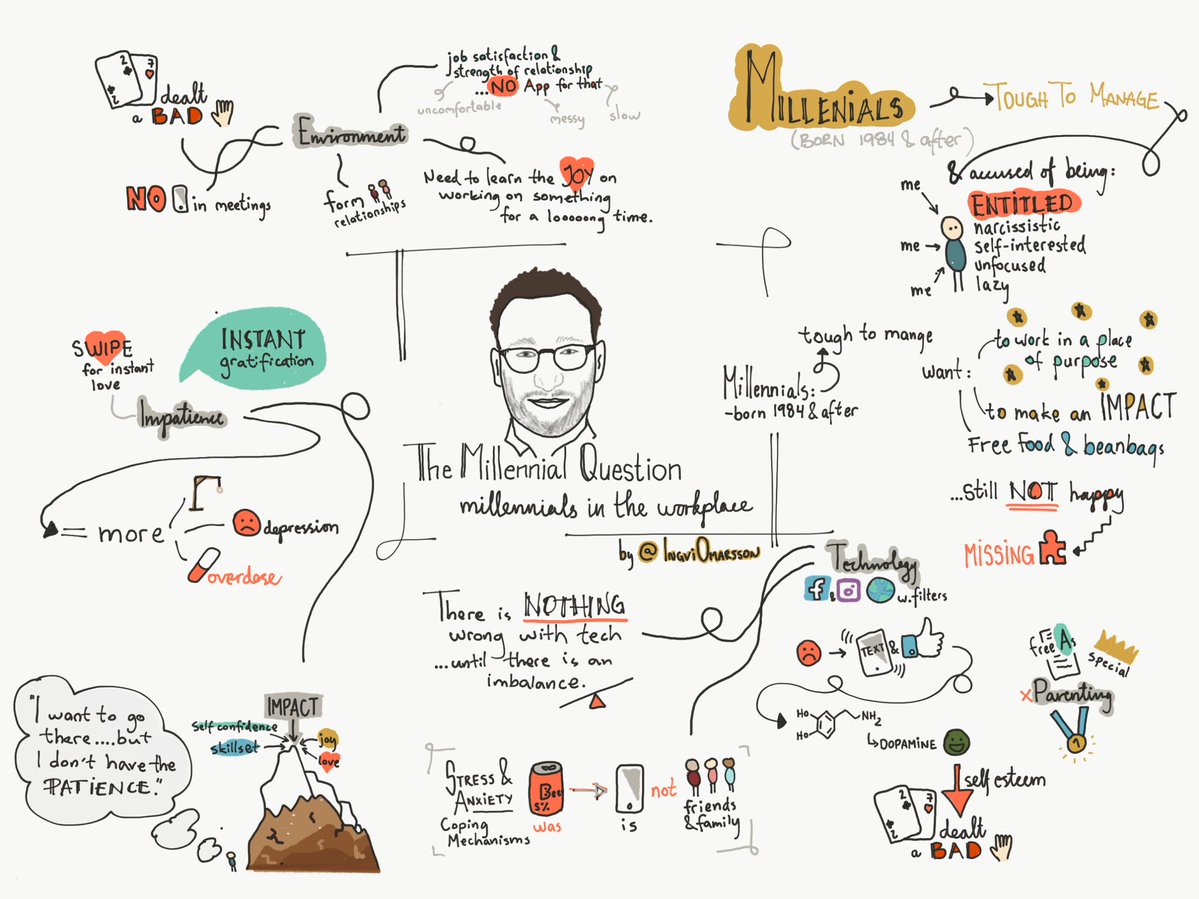 MILLENIALS
(BORN 1984 & after)
TOUGH TO MANAGE
& accused of being:
ENTITLED
narcissistic
self-interested
unfocused
lazy
me
me
me
want:
to work in a place
of purpose
to make an IMPACT
Free food & beanbags
...still NOT happy
MISSING
free As
special
x Parenting
1
2
7
dealt
a BAD
Environment
job satisfaction &
strength of relationship
...NO App for that
uncomfortable
messy
slow
NO in meetings
form
relationships
Need to learn the JOY on
working on something
for a looooong time.
tough to mange
Millennials:
-born 1984 & after
The Millennial Question
millennials in the workplace
by @IngviOmarsson
INSTANT
gratification
SWIPE
for instant
love
Impatience
= more
depression
overdose
"I want to go
there....but
I don't have the
PATIENCE."
IMPACT
self confidence
skillset
joy
love
There is NOTHING
wrong with tech
...until there is an
imbalance.
Technology
f & w.filters
TEXT &
HO
HO
NH2
DOPAMINE
self esteem
2
7
dealt
a BAD
STRESS &
ANXIETY
Coping
Mechanisms
Bee
5%
was
is
not
friends
& family